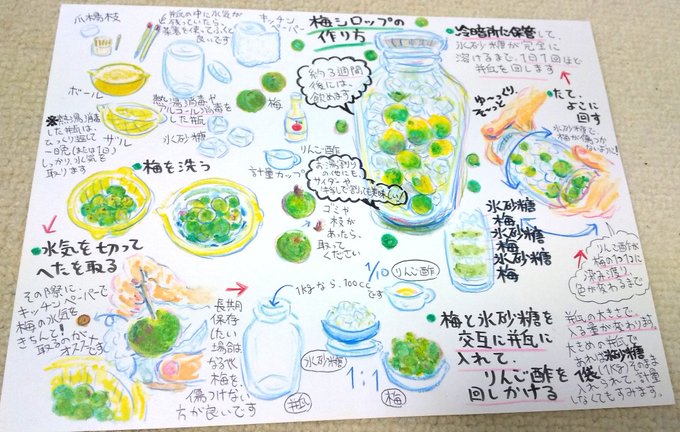 梅シロップの
作り方
爪楊枝
瓶の中に水気が
残っていたら、
良いです
キッチン
ペーパー
ボール
ザル
熱湯消毒や
アルコール消毒を
した瓶
氷砂糖
梅
りんご酢
計量カップ
※熱湯消毒
した瓶は、
ひっくり返して
しっかり水気を
取ります
梅を洗う
水気を切って
へたを取る
その際に
キッチンペーパーで
梅の水気を
きちんと
取るのが
オススメです
長期
保存
したい
場合は
なるべく
梅を、
傷つけない
方が良いです
ゴミや
枝が
あったら、
取って
ください
約3週間
後には、
飲めます
お湯割り
の他にも、
サイダーや
牛乳で割っても美味しい!
冷暗所に保管して、
氷砂糖が完全に
溶けるまで、1日1回ほど
瓶を回します
ゆ〜っくり
そ〜っと
たて、
よこに
回す
氷砂糖で、
梅が傷つか
ないように!
氷砂糖
梅
氷砂糖
梅
氷砂糖
梅
りんご酢が
梅のエキスに
混み渡り、
色が変わるまで
1/10
りんご酢
1kgなら、100cc
です
瓶
氷砂糖
1:1
梅
梅と氷砂糖を
交互に瓶に
入れて、
りんご酢を
回しかける
瓶の大きさで、
入る量が変わります。
大きめの瓶で
あれば、氷砂糖
1袋(1kg)そのまま
入れられて、計量
しなくてもすみます。